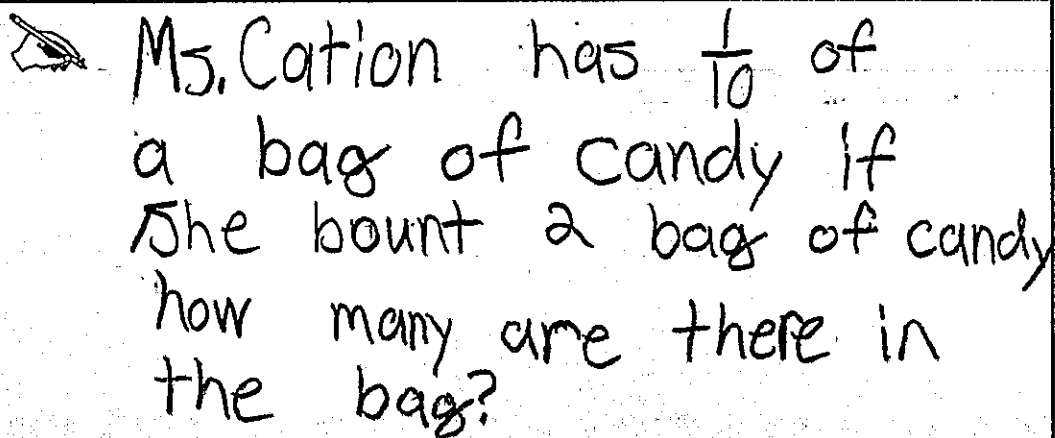 Ms. Cation has 1/10 of
a bag of candy if
She bount 2 bag of candy
how many are there in
the bag?